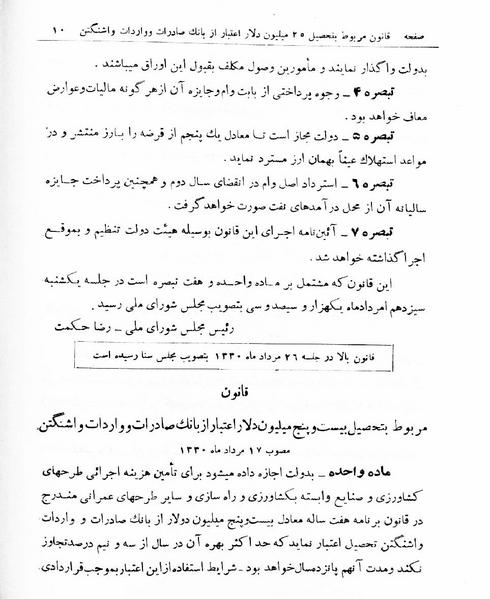 صفحه قانون مربوط بتحصیل ۲۵ میلیون دلار اعتبار از بانك صادرات وواردات واشنگتن ۱۰
بدولت واگذار نمایند و مأمورین وصول مکلف بقبول این اوراق میباشند .
تبصره ۴ ـ وجوه پرداختی از بابت وام وجایزه آن از هر گونه مالیات وعوارض
معاف خواهد بود .
تبصره ۵ ـ دولت مجاز است تا معادل يك پنجم از قرضه را بارز منتشر و در
مواعد استهلاك عیناً بهمان ارز مسترد نماید .
تبصره ۶ ـ استرداد اصل وام در انقضای سال دوم و همچنین پرداخت جایزه
سالیانه آن از محل درآمدهای نفت صورت خواهد گرفت .
تبصره ۷ ـ آئین‌نامه اجرای این قانون بوسیله هیئت دولت تنظیم و بموقع
اجرا گذاشته خواهد شد .
این قانون که مشتمل بر ماده واحده و هفت تبصره است در جلسه یکشنبه
سیزدهم امردادماه یکهزار و سیصد و سی بتصویب مجلس شورای ملی رسید .
رئیس مجلس شورای ملی ـ رضا حکمت
قانون بالا در جلسه ۲۶ مرداد ماه ۱۳۳۰ بتصویب مجلس سنا رسیده است
قانون
مربوط بتحصیل بیست و پنج میلیون دلار اعتبار از بانك صادرات وواردات واشنگتن
مصوب ۱۷ مرداد ماه ۱۳۳۰
ماده واحده ـ بدولت اجازه داده میشود برای تأمین هزینه اجرائی طرحهای
کشاورزی و صنایع وابسته بکشاورزی و راه سازی و سایر طرحهای عمرانی مندرج
در قانون برنامه هفت ساله معادل بیست و پنج میلیون دولار از بانك صادرات و واردات
واشنگتن تحصیل اعتبار نماید که حد اکثر بهره آن در سال از سه و نیم درصد تجاوز
نکند و مدت آنهم پانزده سال خواهد بود ـ شرایط استفاده از این اعتبار بموجب قراردادی